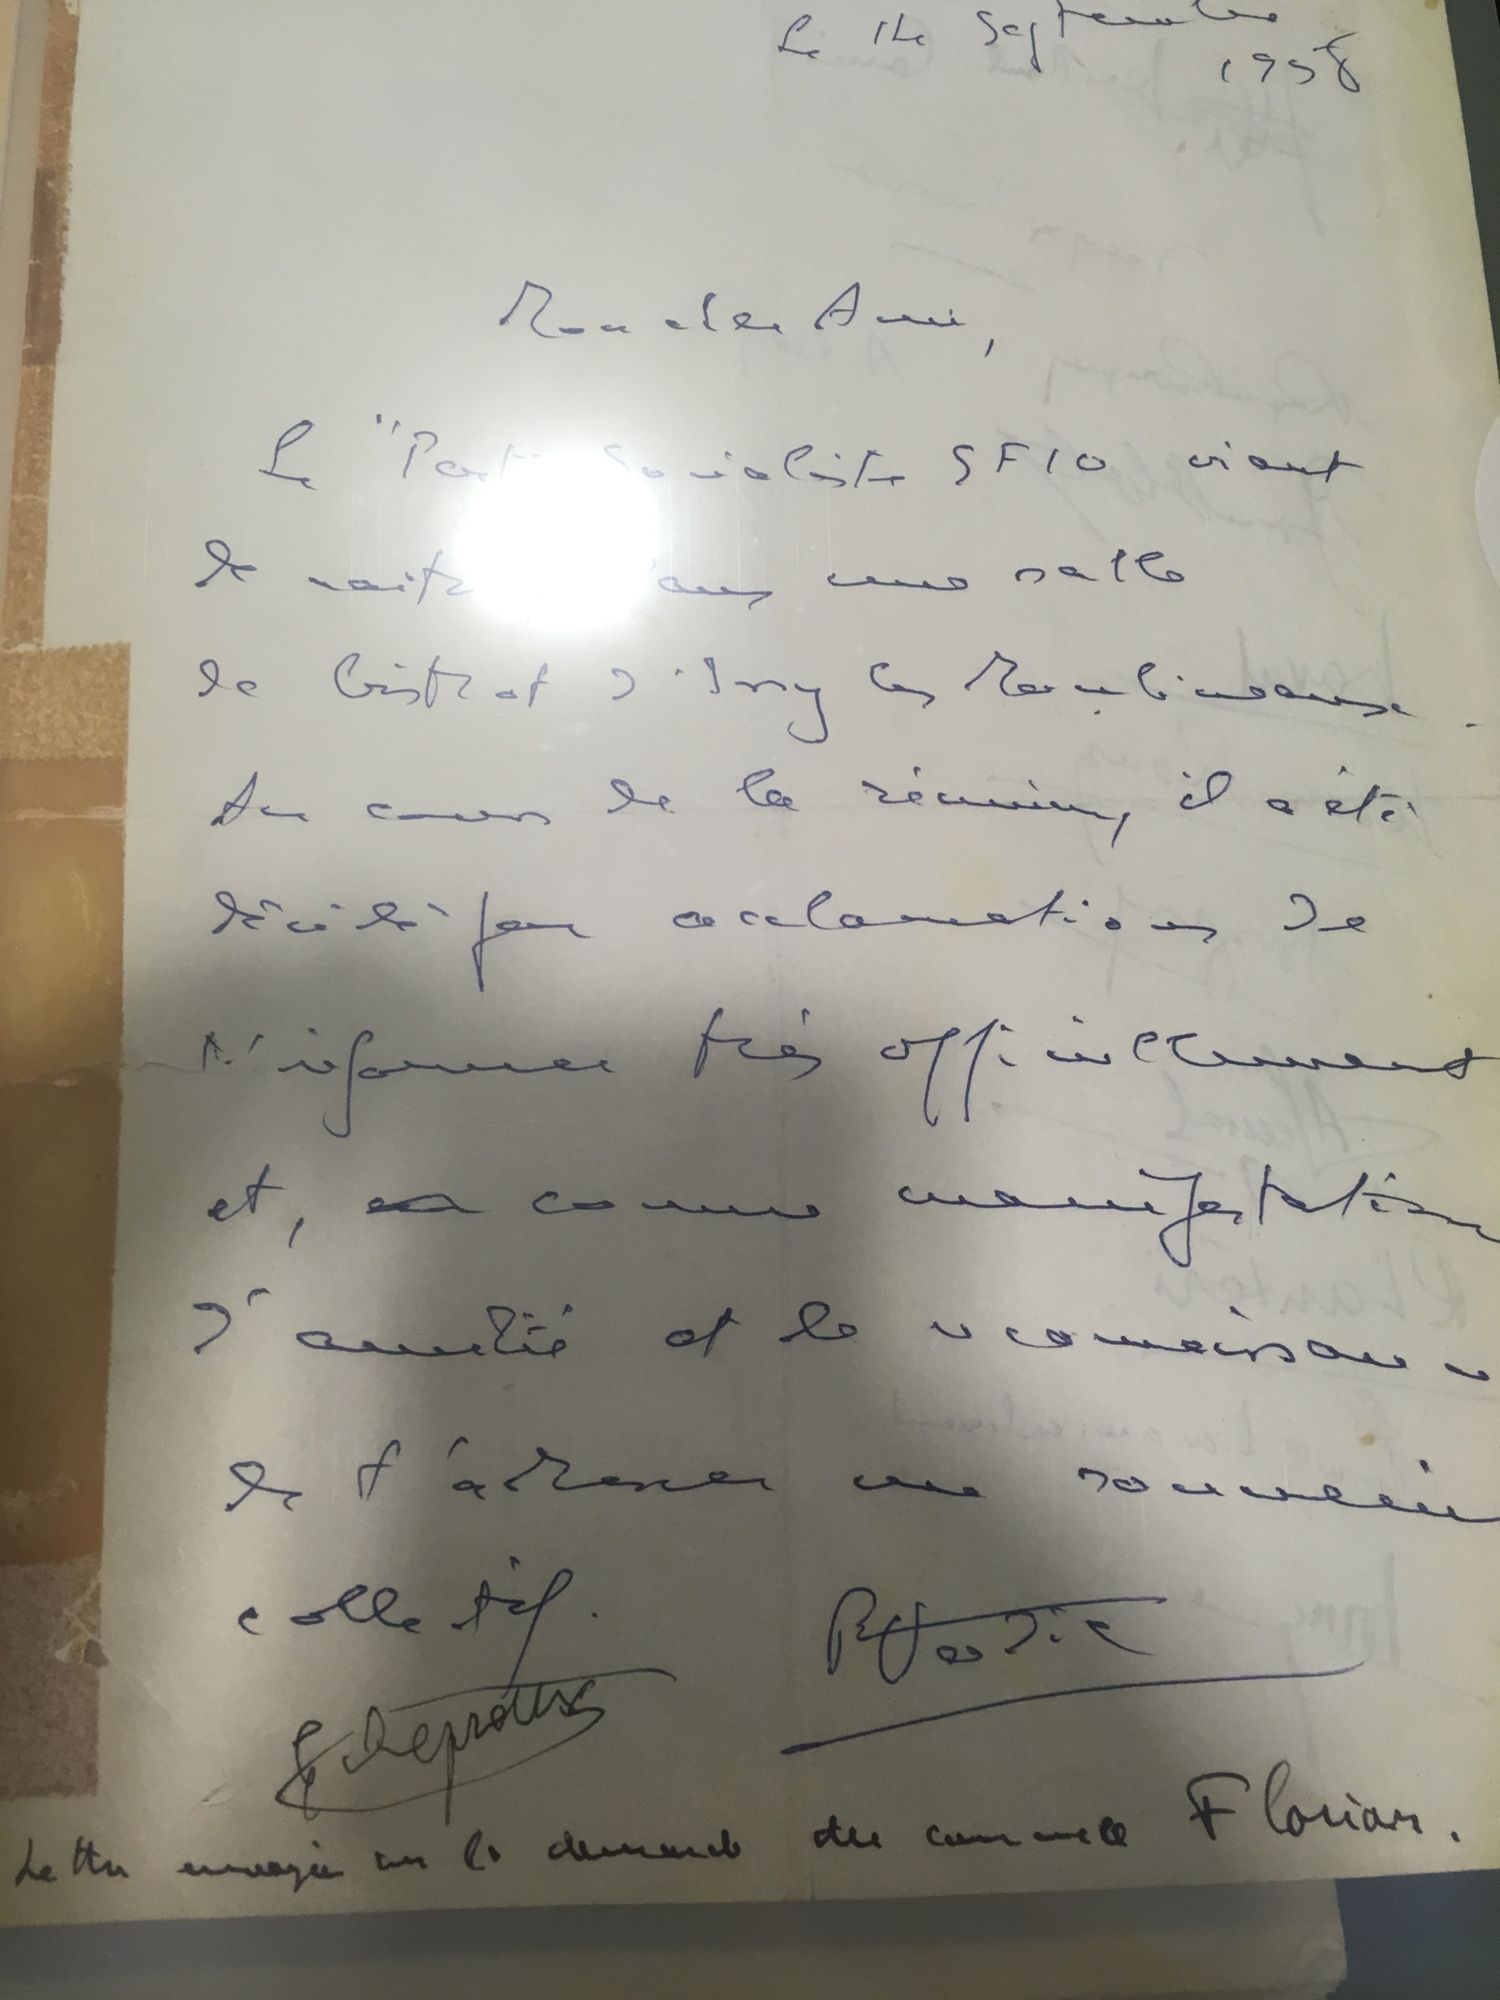 Le 14 Septembre
1958
Mon cher Ami,
Le "Parti Socialiste SFIO vient
de naitre dans une salle
de bistrot d'Issy les Moulineaux.
Au cours de la réunion, il a été
décidé par acclamations de
t'informer très officiellement
et, comme manifestation
d'amitié et de reconnaissance
de t'adresser un souvenir
collectif.
G Depreux
Lettre envoyée sur la demande du camarade Florian.